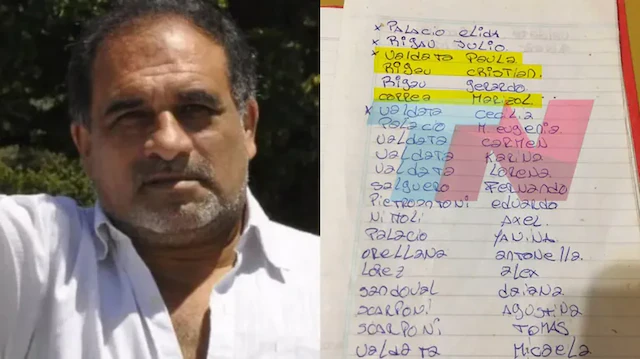 x PALACIO ELIDA
x Rigau JULIO.
x Valdata Paula.
Rigau CRISTIAN.
Rigau gerardo
correa Marisol.
x Valdata Cecilia
Palacio M. eugenia
Valdata CARMEN
Valdata Karina
Valdata Lorena
Salguero Fernando
Pietroantoni eduardo
Nimoli AXEL.
Palacio YANINA.
Orellana antonella.
Laez alex
Sandoval daiana
SCARPONI AGUSTINA
SCARPONI TOMAS
Valdata Micaela